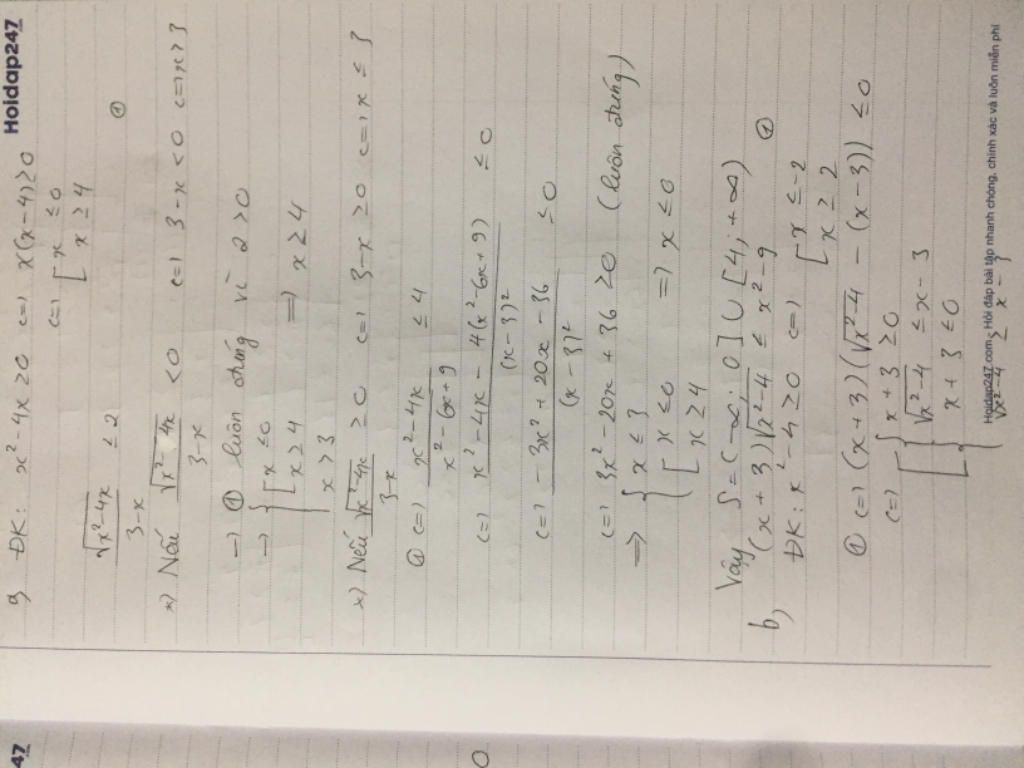 Hoidap247
a, ĐK: x² - 4x ≥ 0 <=> x(x-4) ≥ 0
<=> [ x ≤ 0
x ≥ 4
√(x²-4x) / (3-x) ≤ 2 ①
*) Nếu √(x²-4x) / (3-x) < 0 <=> 3-x < 0 <=> x > 3
→ ① luôn đúng vì 2 > 0
→ { [ x ≤ 0
x ≥ 4
x > 3 => x ≥ 4
*) Nếu √(x²-4x) / (3-x) ≥ 0 <=> 3-x ≥ 0 <=> x ≤ 3
① <=> (x²-4x) / (x²-6x+9) ≤ 4
<=> (x²-4x - 4(x²-6x+9)) / (x-3)² ≤ 0
<=> (-3x² + 20x - 36) / (x-3)² ≤ 0
<=> 3x² - 20x + 36 ≥ 0 (luôn đúng)
=> { x ≤ 3
[ x ≤ 0
x ≥ 4 => x ≤ 0
Vậy S = (-∞; 0] ∪ [4; +∞)
b, (x+3)√(x²-4) ≤ x²-9 ①
ĐK: x²-4 ≥ 0 <=> [ x ≤ -2
x ≥ 2
① <=> (x+3)(√(x²-4) - (x-3)) ≤ 0
<=> [ { x+3 ≥ 0
√(x²-4) ≤ x-3
{ x+3 ≤ 0
√(x²-4) ≥ x-3
Hoidap247.com - Hỏi đáp bài tập nhanh chóng, chính xác và luôn miễn phí
47